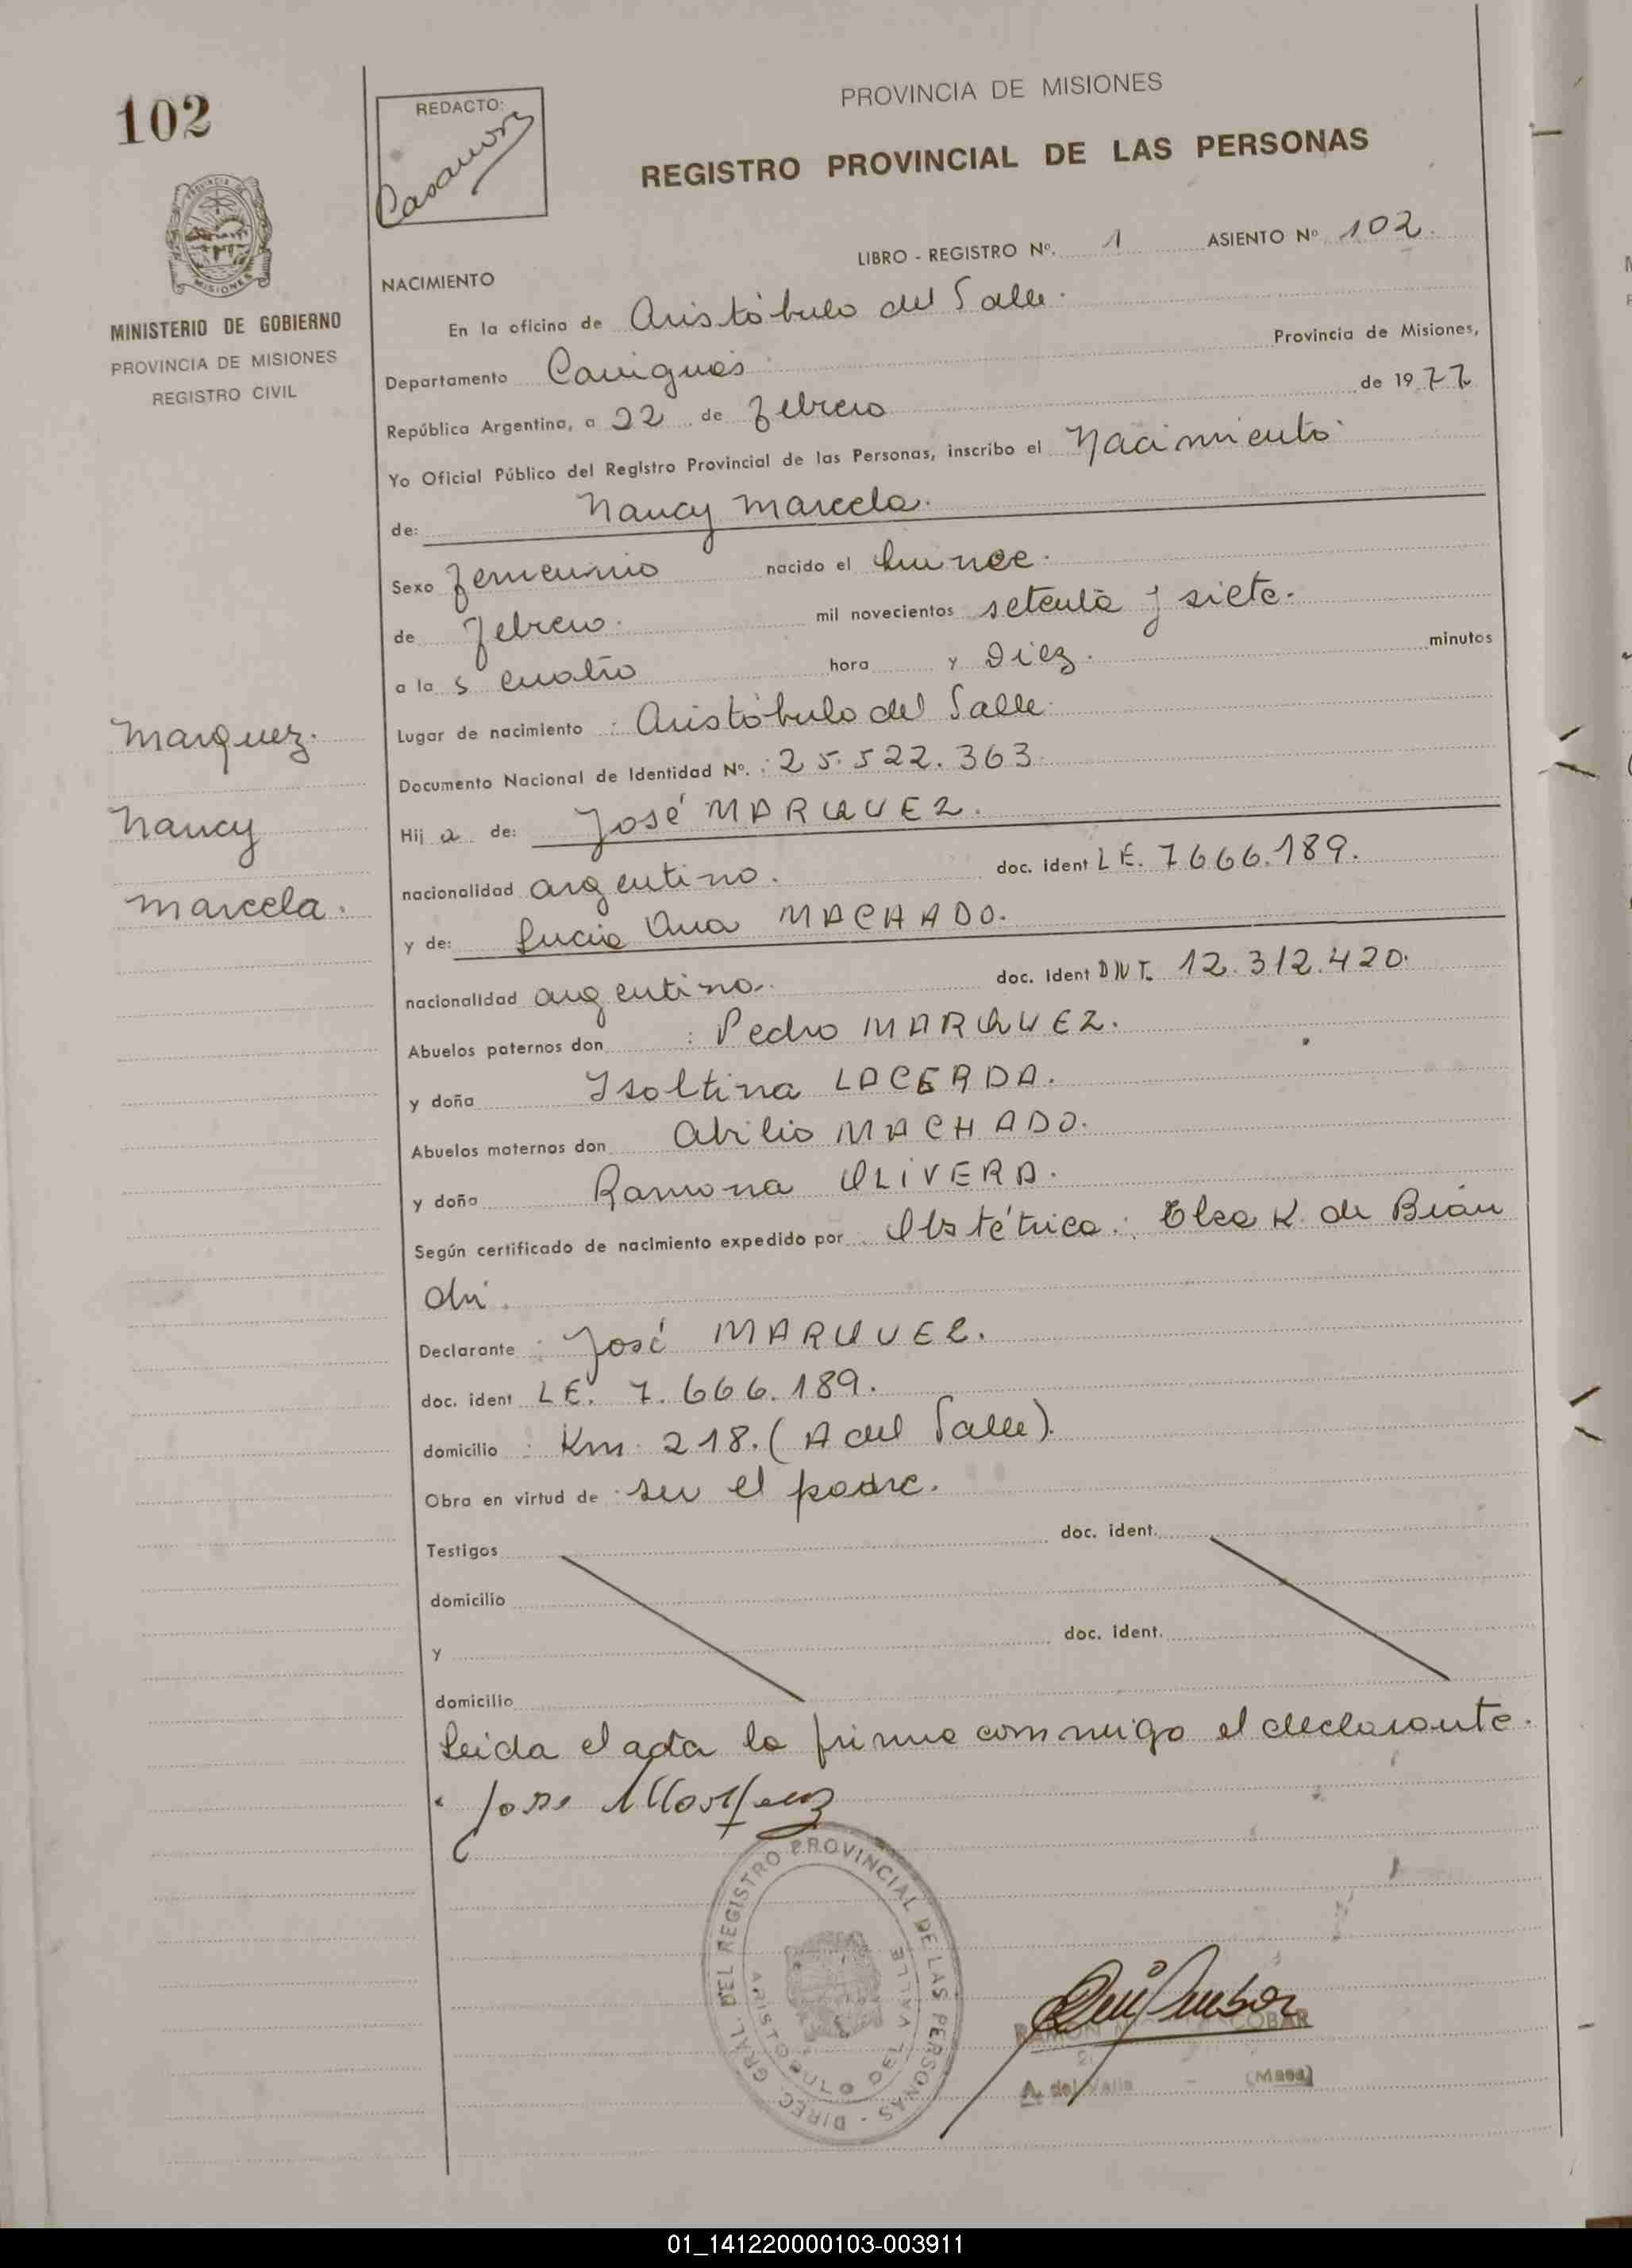 102
REDACTO:
Casanova
PROVINCIA DE MISIONES
REGISTRO PROVINCIAL DE LAS PERSONAS
MISIONES
MINISTERIO DE GOBIERNO
PROVINCIA DE MISIONES
REGISTRO CIVIL
LIBRO - REGISTRO Nº. 1 ASIENTO Nº 102.
NACIMIENTO
En la oficina de Aristóbulo del Valle.
Departamento Cainguás Provincia de Misiones,
República Argentina, a 22 de febrero de 1977
Yo Oficial Público del Registro Provincial de las Personas, inscribo el Nacimiento
de: Nancy Marcela.
Sexo femenino nacido el quince.
de febrero. mil novecientos setenta y siete.
a la s cuatro hora y Diez. minutos
Lugar de nacimiento : Aristóbulo del Valle.
Documento Nacional de Identidad Nº. : 25.522.363.
Hij a de: José MARQUEZ.
nacionalidad argentino. doc. ident LE. 7666.189.
y de: Lucia Ana MACHADO.
nacionalidad argentina. doc. Ident DNI. 12.312.420.
Abuelos paternos don : Pedro MARQUEZ.
y doña Isoltina LACERDA.
Abuelos maternos don Abilio MACHADO.
y doña Ramona OLIVERA.
Según certificado de nacimiento expedido por : Obstétrica: Elsa K. de Bian
dri.
Declarante : José MARQUEZ.
doc. ident LE. 7.666.189.
domicilio : Km. 218. (A del Valle).
Obra en virtud de ser el padre.
Testigos doc. ident.
domicilio
y doc. ident.
domicilio
Leida el acta la firma conmigo el declarante.
Jose Marquez
Marquez.
Nancy
Marcela.
DIREC. GRAL. DEL REGISTRO PROVINCIAL DE LAS PERSONAS
ARISTOBULO DEL VALLE
RAMON ESCOBAR
A. del Valle - (Mnes)
01_141220000103-003911